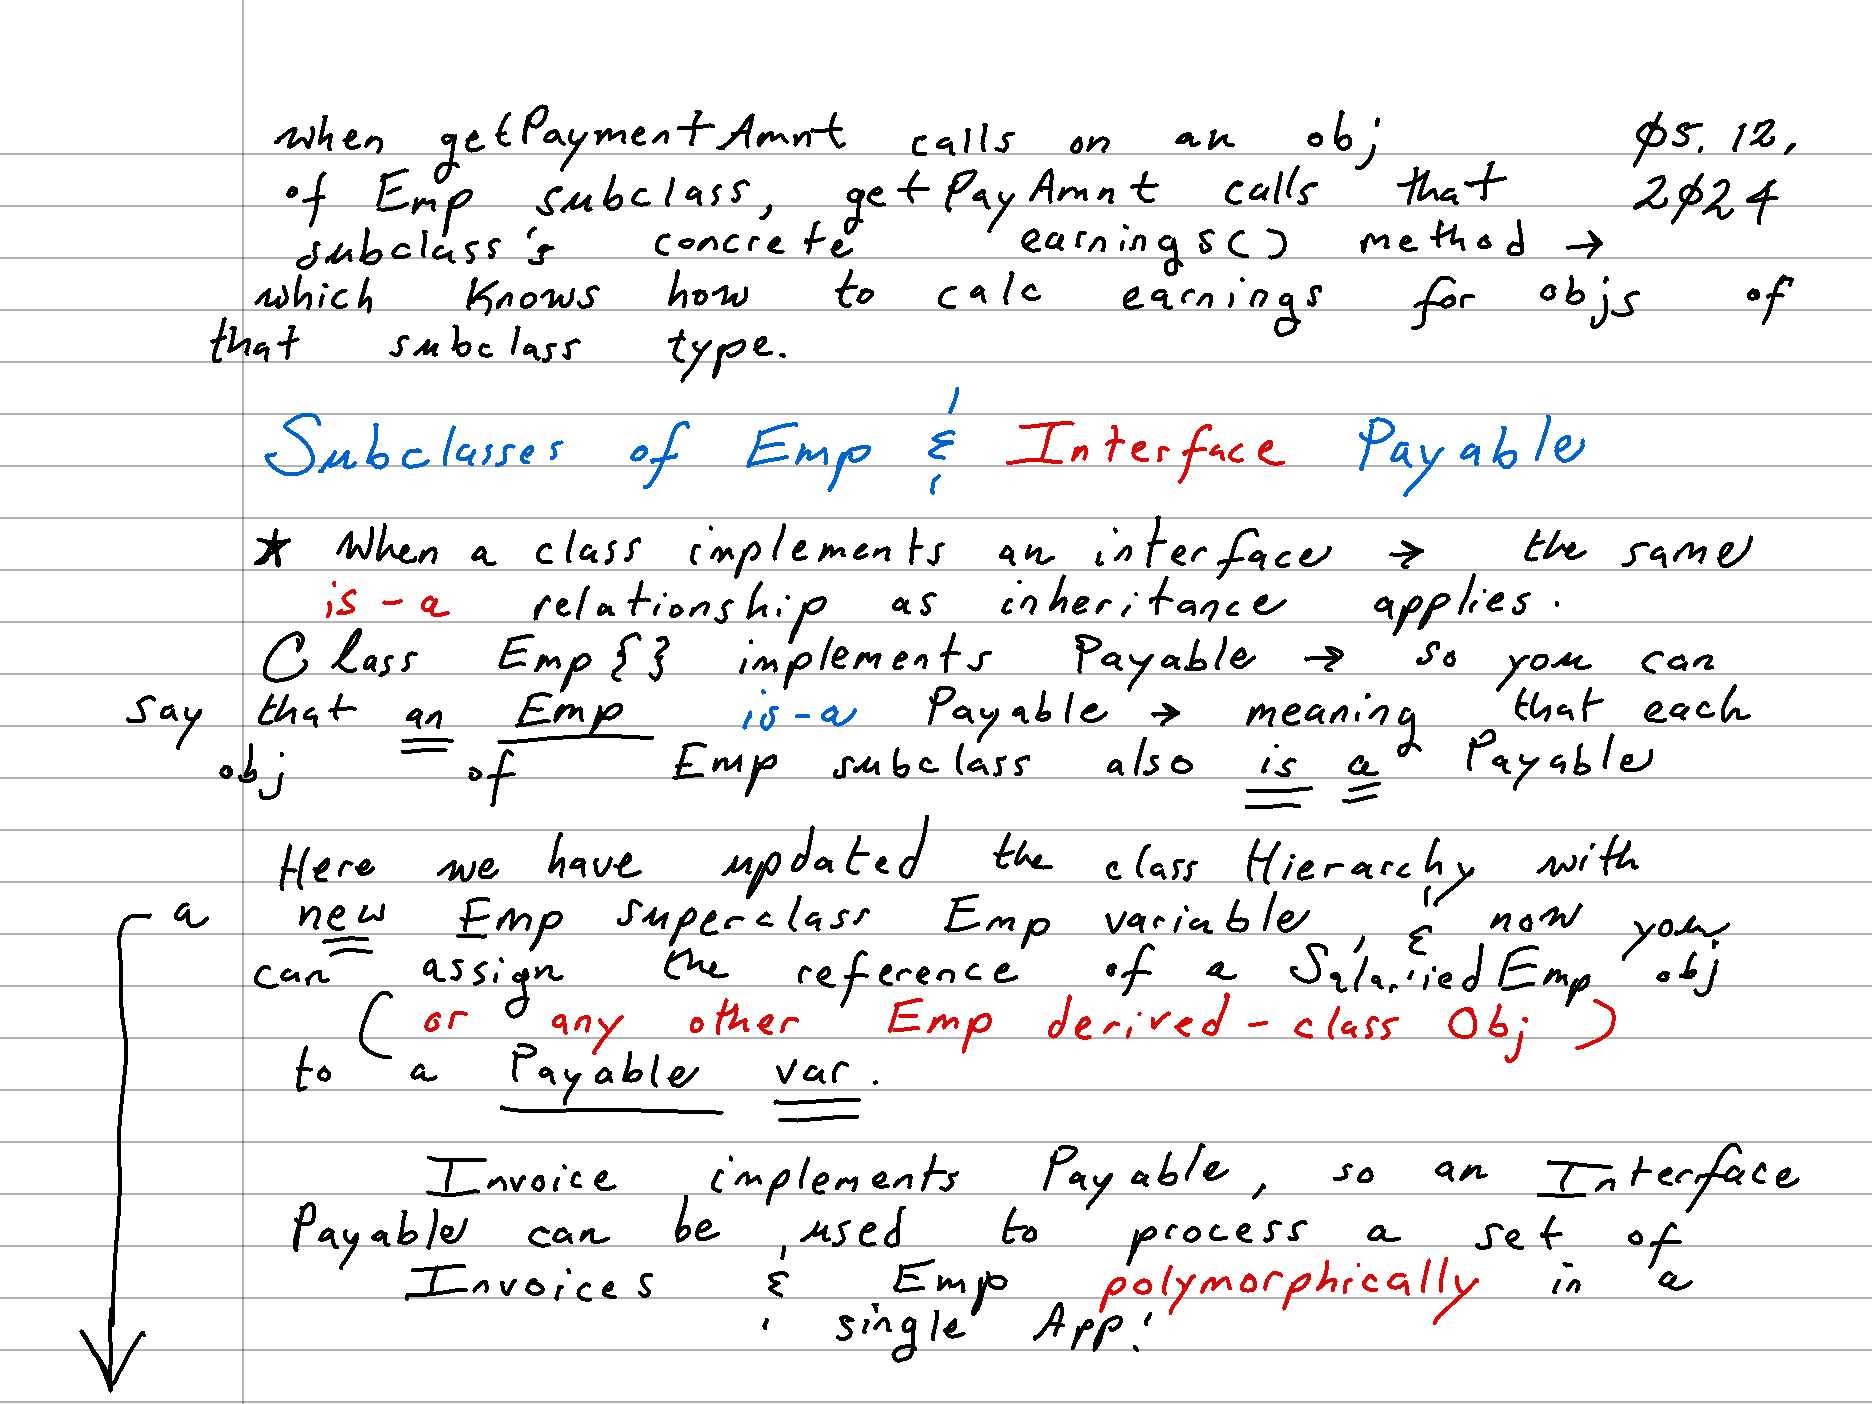 when getPaymentAmnt calls on an obj
Ø5. 12,
of Emp subclass, getPayAmnt calls that
2Ø24
subclass's concrete earnings() method →
which knows how to calc earnings for objs of
that subclass type.
Subclasses of Emp & Interface Payable
★ When a class implements an interface → the same
is-a relationship as inheritance applies.
Class Emp{} implements Payable → so you can
say that an Emp is-a Payable → meaning that each
obj of Emp subclass also is a Payable
Here we have updated the class Hierarchy with
a new Emp superclass Emp variable, & now you
can assign the reference of a SalariedEmp obj
(or any other Emp derived-class Obj)
to a Payable var.
Invoice implements Payable, so an Interface
Payable can be used to process a set of
Invoices & Emp polymorphically in a
single App!